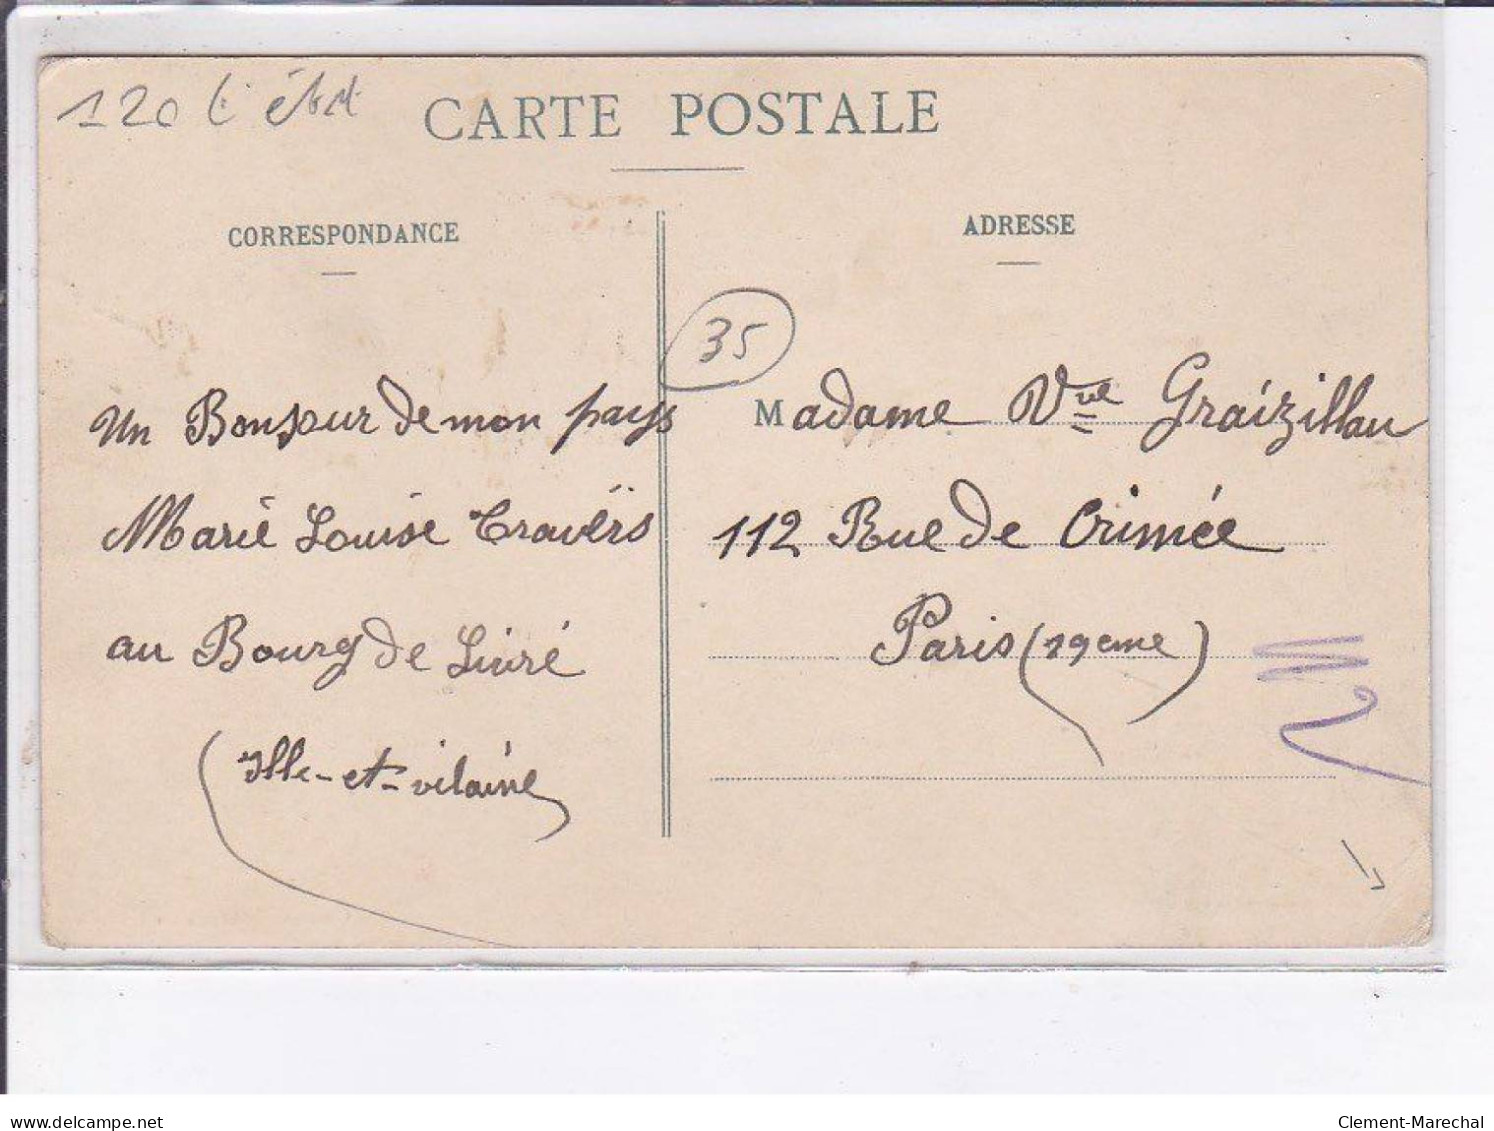 120 l'état
CARTE POSTALE
CORRESPONDANCE
ADRESSE
35
Un Bonjour de mon pays
Marie Louise Travers
au Bourg de Livré
(Ille-et-vilaine)
Madame Vve Graizillau
112 Rue de Crimée
Paris (19eme)
delcampe.net
Clement-Marechal